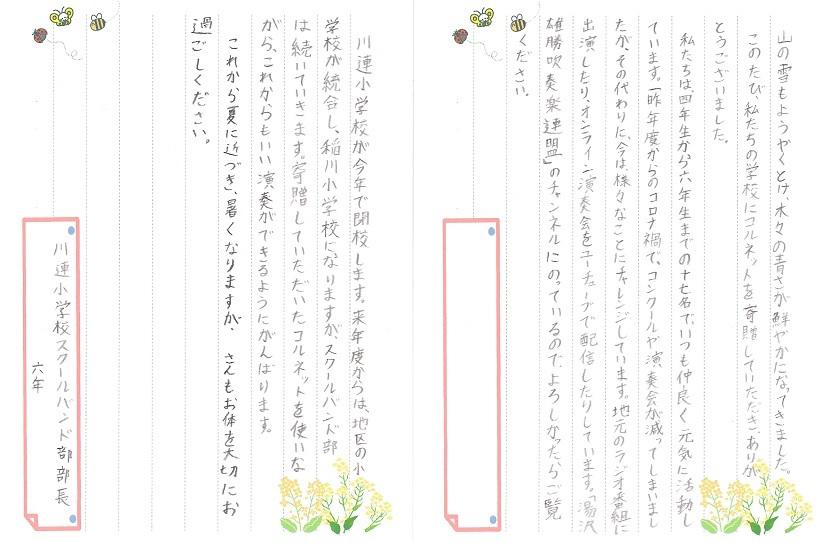 山の雪もようやくとけ、木々の青さが鮮やかになってきました。
このたび、私たちの学校にコルネットを寄贈していただき、ありが
とうございました。
私たちは、四年生から六年生までの十七名で、いつも仲良く元気に活動し
ています。一昨年度からのコロナ禍で、コンクールや演奏会が減ってしまいまし
たが、その代わりに、今は、様々なことにチャレンジしています。地元のラジオ番組に
出演したり、オンライン演奏会をユーチューブで配信したりしています。「湯沢
雄勝吹奏楽連盟」のチャンネルにのっているので、よろしかったらご覧
ください。
川連小学校が今年で閉校します。来年度からは、地区の小
学校が統合し、稲川小学校になりますが、スクールバンド部
は続いていきます。寄贈していただいたコルネットを使いな
がら、これからもいい演奏ができるようにがんばります。
これから夏に近づき、暑くなりますが、 さんもお体を大切にお
過ごしください。
川連小学校スクールバンド部部長
六年